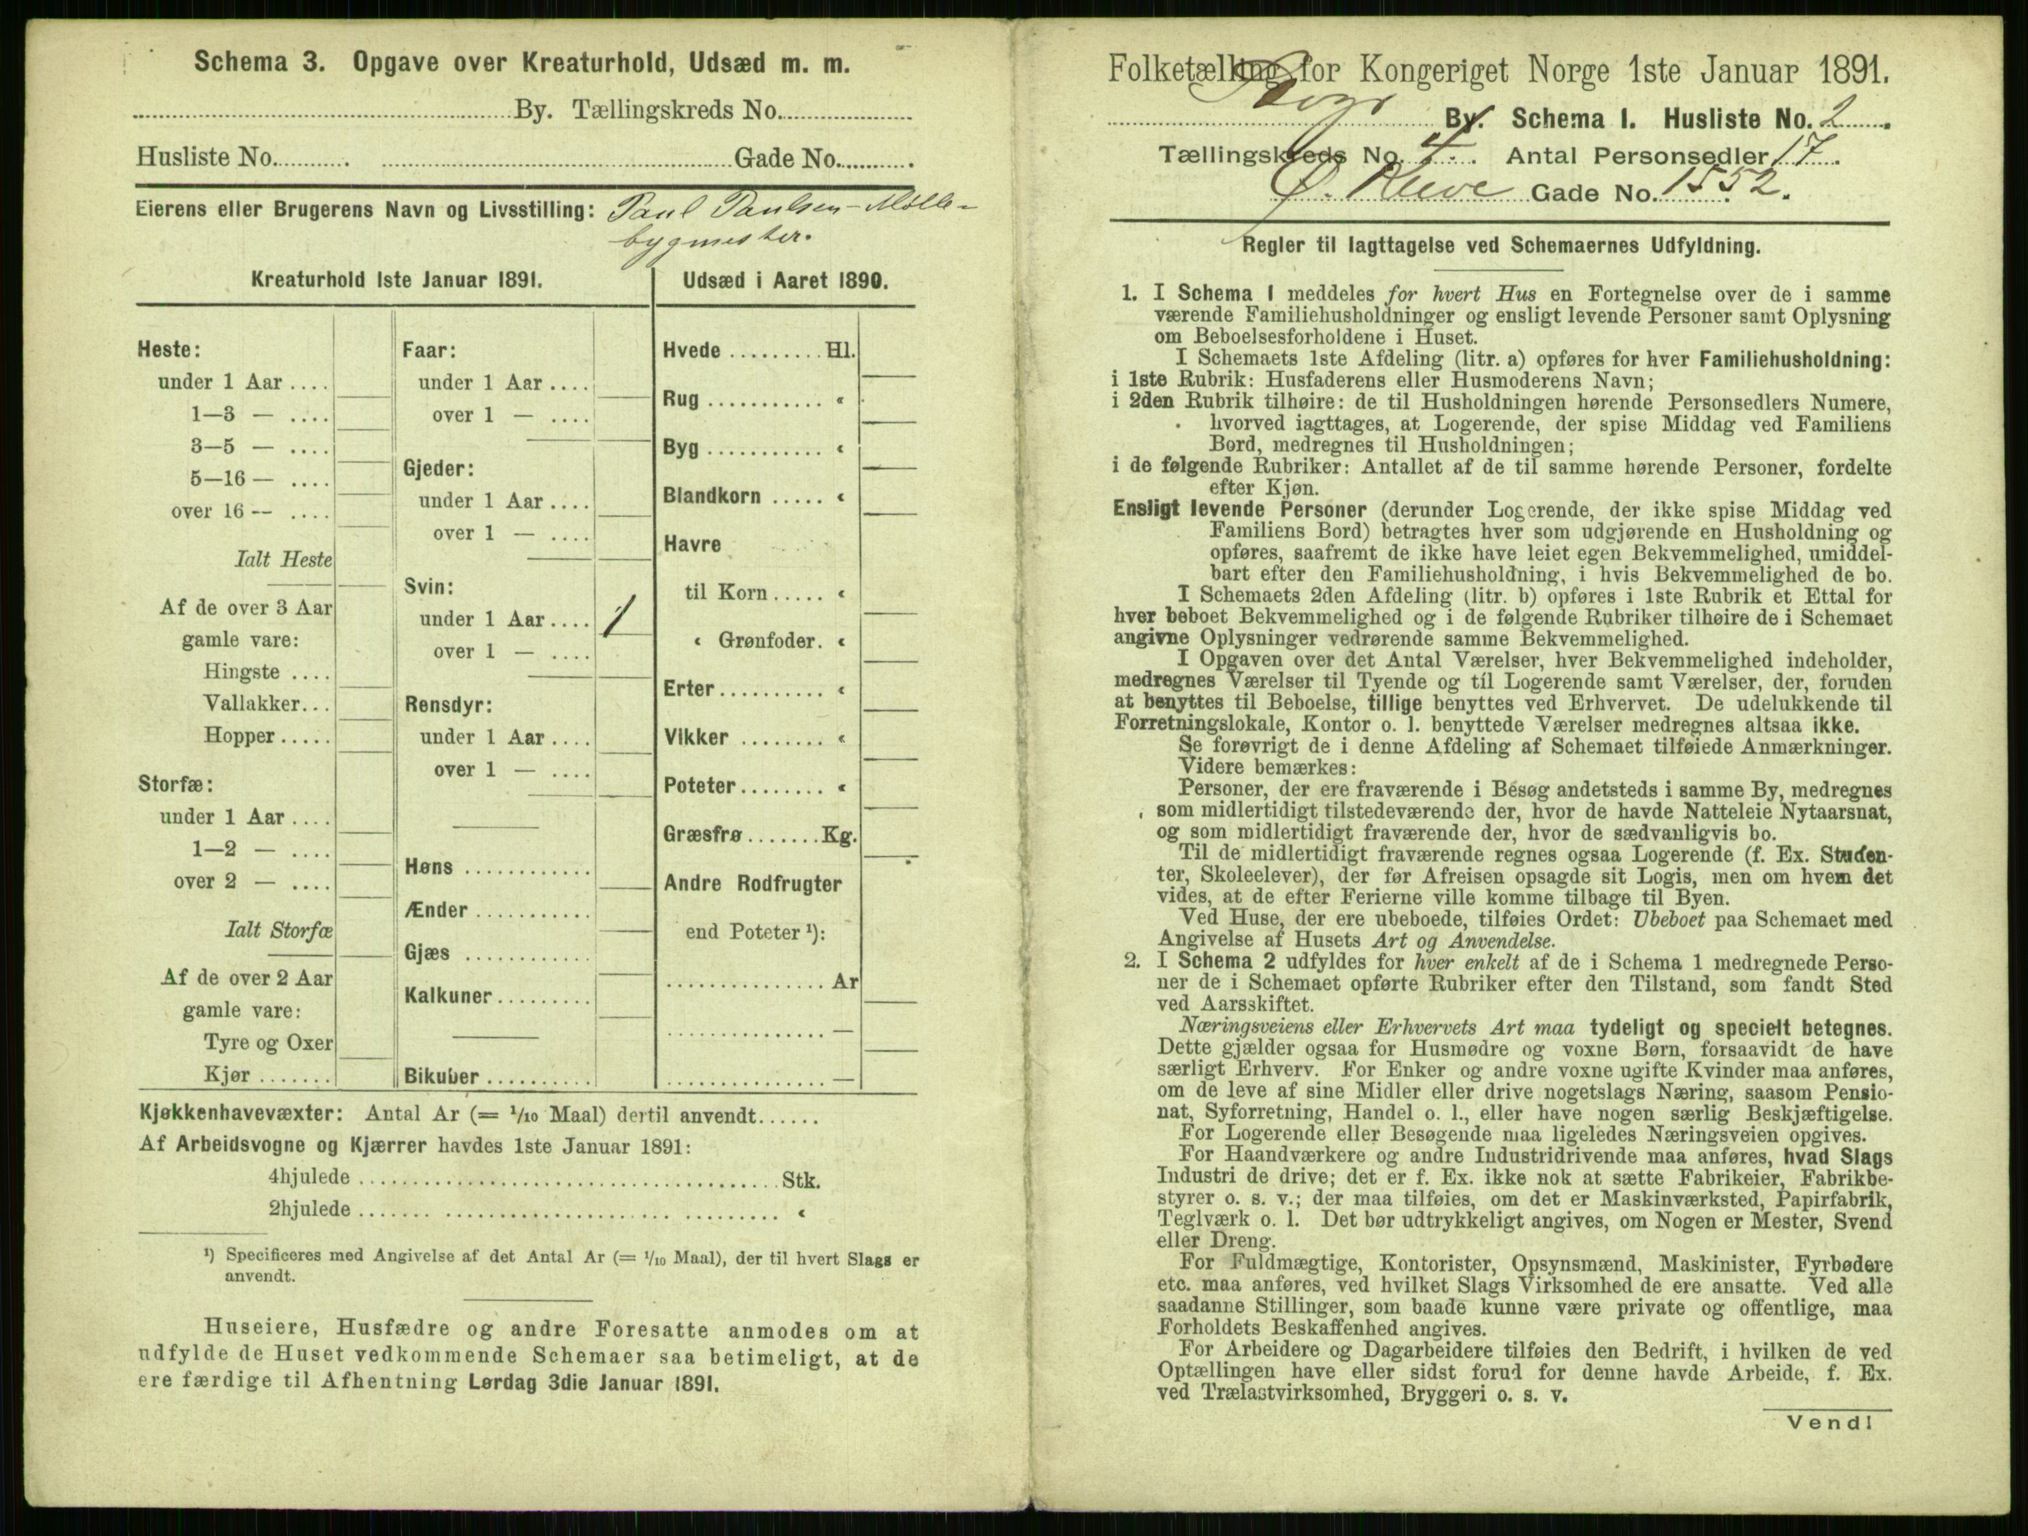 Schema 3. Opgave over Kreaturhold, Udsæd m. m.
By. Tællingskreds No.
Husliste No. Gade No.
Eierens eller Brugerens Navn og Livsstilling: Paul Paulsen - Mølle-
bygmester.
Kreaturhold 1ste Januar 1891.
Heste:
under 1 Aar
1—3 —
3—5 —
5—16 —
over 16 —
Ialt Heste
Af de over 3 Aar
gamle vare:
Hingste
Vallakker
Hopper
Storfæ:
under 1 Aar
1—2 —
over 2 —
Ialt Storfæ
Af de over 2 Aar
gamle vare:
Tyre og Oxer
Kjør
Faar:
under 1 Aar
over 1 —
Gjeder:
under 1 Aar
over 1 —
Svin:
under 1 Aar 1
over 1 —
Rensdyr:
under 1 Aar
over 1 —
Høns
Ænder
Gjæs
Kalkuner
Bikuber
Udsæd i Aaret 1890.
Hvede Hl.
Rug «
Byg «
Blandkorn «
Havre
til Korn «
« Grønfoder. «
Erter «
Vikker «
Poteter «
Græsfrø Kg.
Andre Rodfrugter
end Poteter ¹):
Ar
—
—
Kjøkkenhavevæxter: Antal Ar (= 1/10 Maal) dertil anvendt
Af Arbeidsvogne og Kjærrer havdes 1ste Januar 1891:
4hjulede Stk.
2hjulede «
¹) Specificeres med Angivelse af det Antal Ar (= 1/10 Maal), der til hvert Slags er
anvendt.
Huseiere, Husfædre og andre Foresatte anmodes om at
udfylde de Huset vedkommende Schemaer saa betimeligt, at de
ere færdige til Afhentning Lørdag 3die Januar 1891.
Folketælling for Kongeriget Norge 1ste Januar 1891.
By. Schema 1. Husliste No. 2
Tællingskreds No. 4. Antal Personsedler 17.
Gade No. 1552.
Regler til Iagttagelse ved Schemaernes Udfyldning.
1. I Schema 1 meddeles for hvert Hus en Fortegnelse over de i samme
værende Familiehusholdninger og ensligt levende Personer samt Oplysning
om Beboelsesforholdene i Huset.
I Schemaets 1ste Afdeling (litr. a) opføres for hver Familiehusholdning:
i 1ste Rubrik: Husfaderens eller Husmoderens Navn;
i 2den Rubrik tilhøire: de til Husholdningen hørende Personsedlers Numere,
hvorved iagttages, at Logerende, der spise Middag ved Familiens
Bord, medregnes til Husholdningen;
i de følgende Rubriker: Antallet af de til samme hørende Personer, fordelte
efter Kjøn.
Ensligt levende Personer (derunder Logerende, der ikke spise Middag ved
Familiens Bord) betragtes hver som udgjørende en Husholdning og
opføres, saafremt de ikke have leiet egen Bekvemmelighed, umiddel-
bart efter den Familiehusholdning, i hvis Bekvemmelighed de bo.
I Schemaets 2den Afdeling (litr. b) opføres i 1ste Rubrik et Ettal for
hver beboet Bekvemmelighed og i de følgende Rubriker tilhøire de i Schemaet
angivne Oplysninger vedrørende samme Bekvemmelighed.
I Opgaven over det Antal Værelser, hver Bekvemmelighed indeholder,
medregnes Værelser til Tyende og til Logerende samt Værelser, der, foruden
at benyttes til Beboelse, tillige benyttes ved Erhvervet. De udelukkende til
Forretningslokale, Kontor o. l. benyttede Værelser medregnes altsaa ikke.
Se forøvrigt de i denne Afdeling af Schemaet tilføiede Anmærkninger.
Videre bemærkes:
Personer, der ere fraværende i Besøg andetsteds i samme By, medregnes
som midlertidigt tilstedeværende der, hvor de havde Natteleie Nytaarsnat,
og som midlertidigt fraværende der, hvor de sædvanligvis bo.
Til de midlertidigt fraværende regnes ogsaa Logerende (f. Ex. Studen-
ter, Skoleelever), der før Afreisen opsagde sit Logis, men om hvem det
vides, at de efter Ferierne ville komme tilbage til Byen.
Ved Huse, der ere ubeboede, tilføies Ordet: Ubeboet paa Schemaet med
Angivelse af Husets Art og Anvendelse.
2. I Schema 2 udfyldes for hver enkelt af de i Schema 1 medregnede Perso-
ner de i Schemaet opførte Rubriker efter den Tilstand, som fandt Sted
ved Aarsskiftet.
Næringsveiens eller Erhvervets Art maa tydeligt og specielt betegnes.
Dette gjælder ogsaa for Husmødre og voxne Børn, forsaavidt de have
særligt Erhverv. For Enker og andre voxne ugifte Kvinder maa anføres,
om de leve af sine Midler eller drive nogetslags Næring, saasom Pensio-
nat, Syforretning, Handel o. l., eller have nogen særlig Beskjæftigelse.
For Logerende eller Besøgende maa ligeledes Næringsveien opgives.
For Haandværkere og andre Industridrivende maa anføres, hvad Slags
Industri de drive; det er f. Ex. ikke nok at sætte Fabrikeier, Fabrikbe-
styrer o. s. v.; der maa tilføies, om det er Maskinværksted, Papirfabrik,
Teglværk o. l. Det bør udtrykkeligt angives, om Nogen er Mester, Svend
eller Dreng.
For Fuldmægtige, Kontorister, Opsynsmænd, Maskinister, Fyrbødere
etc. maa anføres, ved hvilket Slags Virksomhed de ere ansatte. Ved alle
saadanne Stillinger, som baade kunne være private og offentlige, maa
Forholdets Beskaffenhed angives.
For Arbeidere og Dagarbeidere tilføies den Bedrift, i hvilken de ved
Optællingen have eller sidst forud for denne havde Arbeide, f. Ex.
ved Trælastvirksomhed, Bryggeri o. s. v.
Vend!